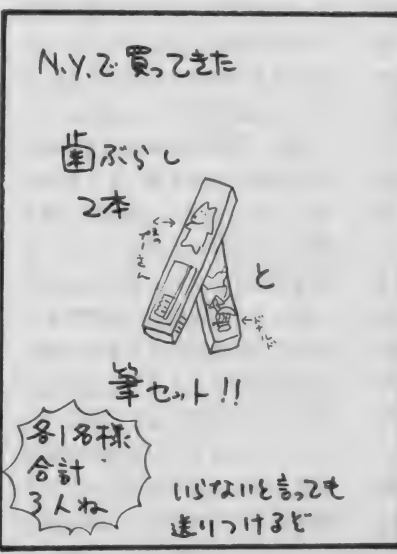 N.Y.で買ってきた
歯ぶらし
2本
くまの
プーさん
と
ドナルド
筆セット!!
各1名様
合計
3人ね
いらないと言っても
送りつけるぞ